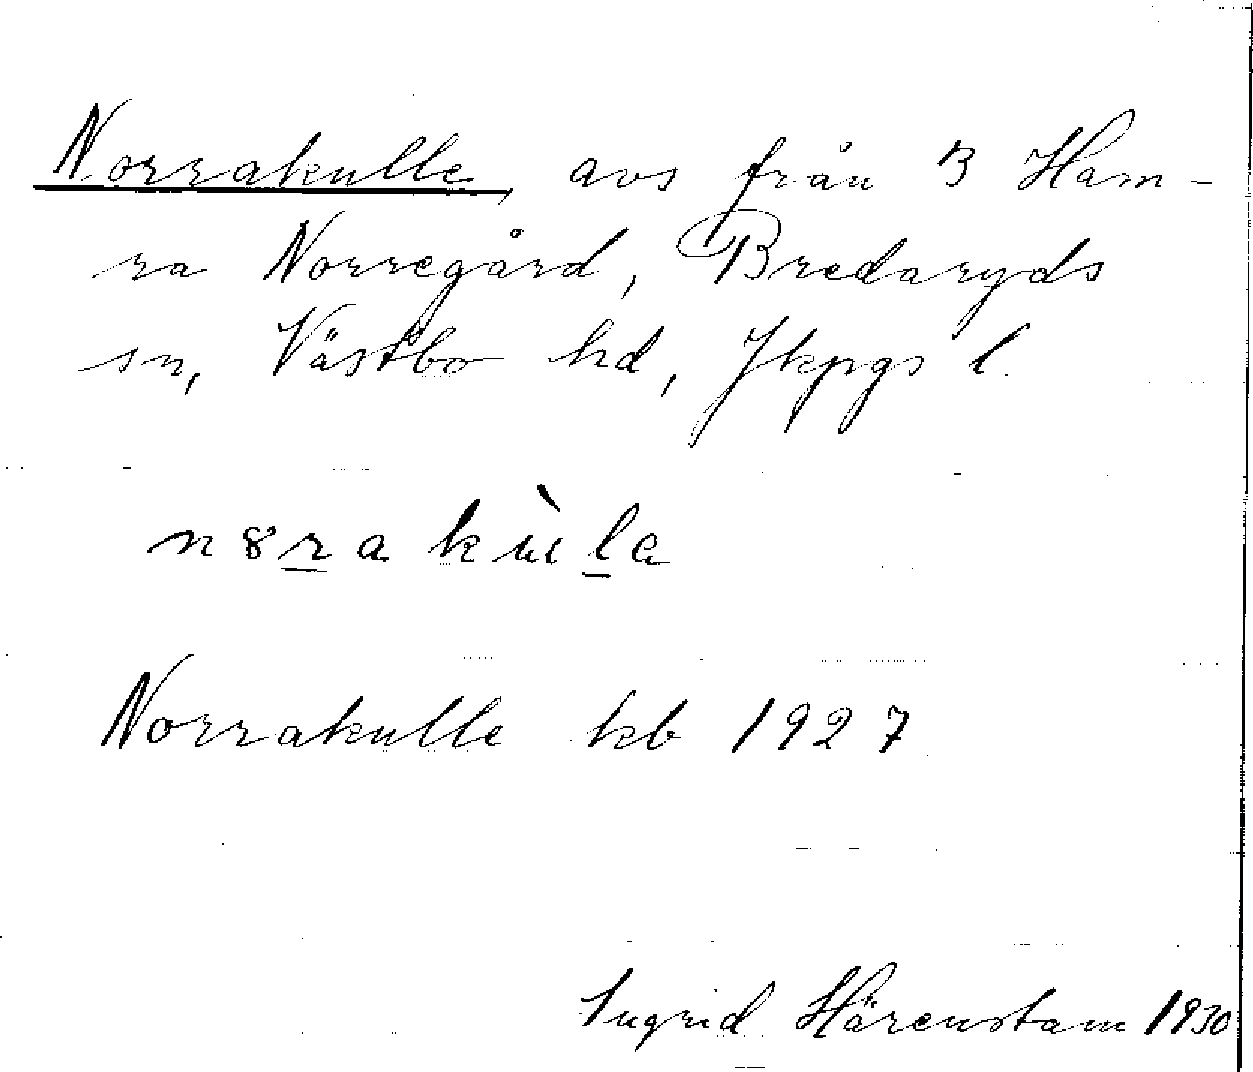 Norrakulle, avs från 3 Ham-
ra Norregård, Bredaryds
sn, Västbo hd, Jkpgs l.
n8ra kùla
Norrakulle kb 1927
Ingrid Härenstam 1930